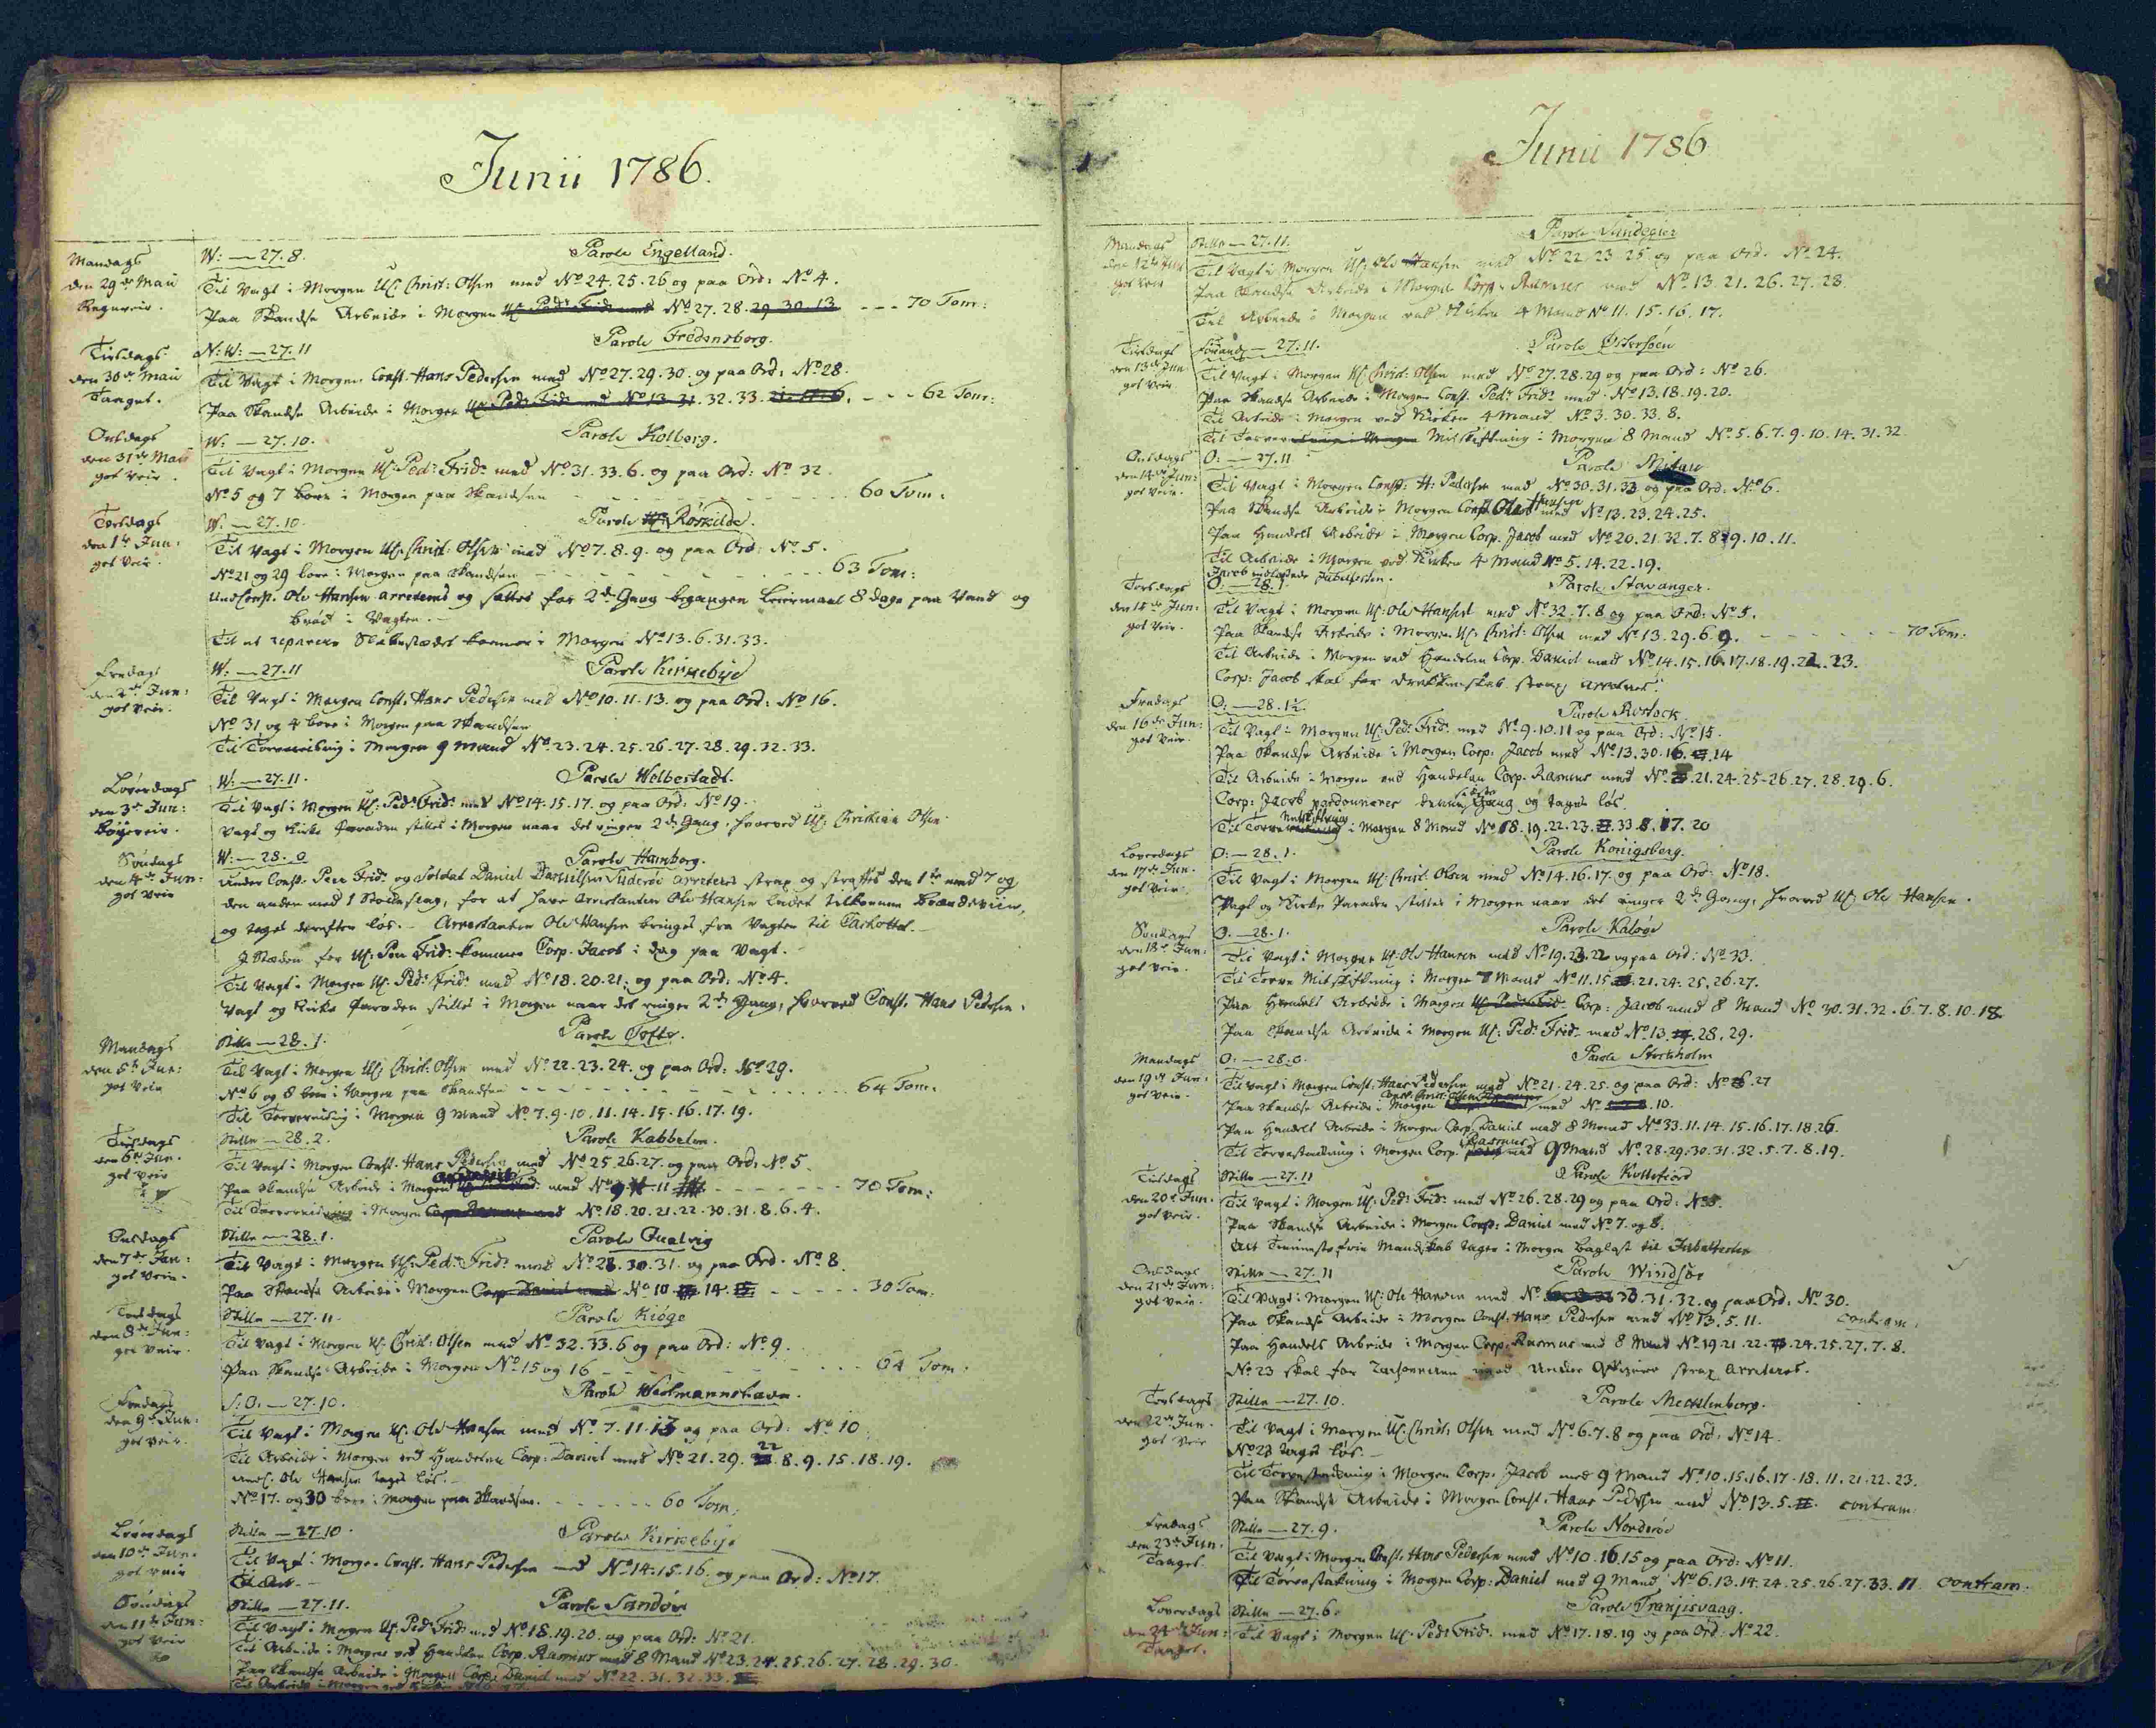 Junii 1786.
Mandags
den 29de Maii
Regnveir.
W: — 27. 8.
Parole Engelland.
Til Vagt i Morgen Uc: Christ: Olsen med No 24. 25. 26 og paa Ord: No 4.
Paa Skandse Arbeide i Morgen Uc: Ped: Frid: med No 27. 28. 29. 30. 13 --- 70 Tom:
Tirsdags
den 30de Maii
Taaget.
N: W: — 27. 11
Parole Fredensborg.
Til Vagt i Morgen Const. Hans Pedersen med No 27. 29. 30. og paa Ord: No 28.
Paa Skandse Arbeide i Morgen Uc: Ped: Frid: med No 13. 31. 32. 33. --- 62 Tom:
Onsdags
den 31te Maii
got Veir.
W: — 27. 10.
Parole Kolberg.
Til Vagt i Morgen Uc: Ped: Frid: med No 31. 33. 6. og paa Ord: No 32.
No 5 og 7 bære i Morgen paa Skandsen --- 60 Tom:
Torsdags
den 1te Jun:
got Veir.
W: — 27. 10.
Parole Röskilde.
Til Vagt i Morgen Uc: Christ: Olsen med No 7. 8. 9. og paa Ord: No 5.
No 21 og 29 bære i Morgen paa Skandsen --- 63 Tom:
Und Corp. Ole Hansen arresteres og sættes for 2de Gang begangen Leiermaal 8 dage paa Vand og
brød i Vagten.
Til at reparere kommer i Morgen No 13. 6. 31. 33.
Fredags
den 2de Jun:
got Veir.
W: — 27. 11
Parole Kirkebye
Til Vagt i Morgen Const. Hans Pedersen med No 10. 11. 13. og paa Ord: No 16.
No 31 og 4 bære i Morgen paa Skandsen
Til i Morgen 9 Mand No 23. 24. 25. 26. 27. 28. 29. 32. 33.
Löverdags
den 3de Jun:
W: — 27. 11.
Parole Welbestadt.
Til Vagt i Morgen Uc: Ped: Frid: med No 14. 15. 17. og paa Ord: No 19.
Vagt og Kirke Paraden stilles i Morgen naar det ringer 2de Gang, hvorved Uc: Christian Olsen.
Söndags
den 4de Jun:
got Veir
W: — 28. 0
Parole Hamborg.
Under Const. Peer Frid: og Soldat Daniel Danielsen Suderöe arresteres strax og straffes den 1te med 7 og
den anden med 1 Stokkeslag, for at have Arrestanten Ole Hansen ladet tilkomme Brændeviin,
og tages derefter løs. — Arrestanten Ole Hansen bringes fra Vagten til
I Stæden for Uc: Peer Frid: kommer Corp. Jacob i dag paa Vagt.
Til Vagt i Morgen Uc: Ped: Frid: med No 18. 20. 21. og paa Ord: No 4.
Vagt og Kirke Paraden stilles i Morgen naar det ringer 2de Gang, hvorved Const. Hans Pedersen.
Mandags
den 5te Jun:
got Veir
Stille — 28. 1.
Parole Tofte.
Til Vagt i Morgen Uc: Christ: Olsen med No 22. 23. 24. og paa Ord: No 29.
No 6 og 8 bære i Morgen paa Skandsen --- 64 Tom.
Til i Morgen 9 Mand No 7. 9. 10. 11. 14. 15. 16. 17. 19.
Tirsdags
den 6te Jun:
got Veir
Stille — 28. 2.
Parole Kabbelen.
Til Vagt i Morgen Const. Hans Pedersen med No 25. 26. 27. og paa Ord: No 5
Paa Skandse Arbeide i Morgen med No 9 11 --- 70 Tom:
Til i Morgen No 18. 20. 21. 22. 30. 31. 8. 6. 4.
Onsdags
den 7de Jun:
got Veir.
Stille — 28. 1.
Parole Qualvig
Til Vagt i Morgen Uc: Ped: Frid: med No 28. 30. 31. og paa Ord. No 8.
Paa Skandse Arbeide i Morgen Corp Daniel med No 10 14. --- 30 Tom.
Torsdags
den 8de Jun:
got Veir.
Stille — 27. 11.
Parole Kiöge
Til Vagt i Morgen Uc: Christ: Olsen med No 32. 33. 6 og paa Ord: No 9.
Paa Skandse Arbeide i Morgen No 15 og 16 --- 64 Tom.
Fredags
den 9de Jun:
got Veir.
S: O: — 27. 10.
Parole Westmannshavn.
Til Vagt i Morgen Uc: Ole Hansen med No 7. 11. 13 og paa Ord: No 10
Til Arbeide i Morgen ved Handelen Corp: Daniel med No 21. 29. 22. 8. 9. 15. 18. 19.
Uc: Ole Hansen tages løs.
No 17. og 30 bære i Morgen paa Skandsen. --- 60 Tom:
Löverdags
den 10de Jun:
got Veir
Stille — 27. 10.
Parole Kirkebye
Til Vagt i Morgen Const. Hans Pedersen med No 14. 15. 16. og paa Ord: No 17.
Söndags
den 11te Jun:
got Veir
Stille — 27. 11.
Parole Sandöe
Til Vagt i Morgen Uc: Ped: Frid: med No 18. 19. 20. og paa Ord: No 21.
Til Arbeide i Morgen ved Handelen Corp. Rasmus med 8 Mand No 23. 24. 25. 26. 27. 28. 29. 30.
Paa Skandse Arbeide i Morgen Corp: Daniel med No 22. 31. 32. 33.
Junii 1786
Mandags
den 12te Jun
got Veir
Stille — 27. 11.
Til Vagt i Morgen Uc: Ole Hansen med No 22. 23. 25 og paa Ord. No 24.
Paa Skandse Arbeide i Morgen Corp: Rasmus med No 13. 21. 26. 27. 28.
Til Arbeide i Morgen ved Kirken 4 Mand No 11. 15. 16. 17.
Tirsdags
den 13de Jun
got Veir.
— 27. 11.
Parole Östersöen
Til Vagt i Morgen Uc: Christ: Olsen med No 27. 28. 29 og paa Ord: No 26.
Paa Skandse Arbeide i Morgen Const. Ped: Frid: med No 13. 18. 19. 20.
Til Arbeide i Morgen ved Kirken 4 Mand No 3. 30. 33. 8.
Til Torve Nitskiftning i Morgen 8 Mand No 5. 6. 7. 9. 10. 14. 31. 32
Onsdags
den 14de Jun:
got Veir.
O: — 27. 11
Parole Mitau
Til Vagt i Morgen Const. H: Pedersen med No 30. 31. 33 og paa Ord: No 6.
Paa Skandse Arbeide i Morgen Const Ole Hansen med No 13. 23. 24. 25.
Paa Handels Arbeide i Morgen Corp. Jacob med No 20. 21. 32. 7. 8. 9. 10. 11.
Til Arbeide i Morgen ved Kirken 4 Mand No 5. 14. 22. 19.
Torsdags
den 15de Jun:
got Veir.
O: — 28. 1.
Parole Stavanger.
Til Vagt i Morgen Uc: Ole Hansen med No 32. 7. 8 og paa Ord: No 5.
Paa Skandse Arbeide i Morgen Uc: Christ: Olsen med No 13. 29. 6. 9. --- 70 Tom:
Til Arbeide i Morgen ved Handelen Corp. Daniel med No 14. 15. 16. 17. 18. 19. 22. 23.
Corp: Jacob skal for Drukkenskab strax arresteres.
Fredags
den 16de Jun:
got Veir.
O: — 28. 1½.
Parole Rostock
Til Vagt i Morgen Uc: Ped: Frid: med No 9. 10. 11 og paa Ord: No 15.
Paa Skandse Arbeide i Morgen Corp: Jacob med No 13. 30. 16. 14
Til Arbeide i Morgen ved Handelen Corp. Rasmus med No 21. 24. 25. 26. 27. 28. 29. 6.
Corp: Jacob pardonneres denne sidste Gang og tages løs.
Til Torve Nitskiftning i Morgen 8 Mand No 18. 19. 22. 23. 33. 8. 17. 20
Löverdags
den 17de Jun.
got Veir.
O: — 28. 1.
Parole Königsberg.
Til Vagt i Morgen Uc: Christ. Olsen med No 14. 16. 17. og paa Ord: No 18.
Vagt og Kirke Paraden stilles i Morgen naar det ringer 2de Gang, hvorved Uc: Ole Hansen.
Söndags
den 18de Jun:
got Veir.
O. — 28. 1.
Parole Kalöe
Til Vagt i Morgen Uc: Ole Hansen med No 19. 23. 22 og paa Ord: No 33.
Til Torve Nitskiftning i Morgen 8 Mand No 11. 15. 21. 24. 25. 26. 27.
Paa Handels Arbeide i Morgen Corp: Jacob med 8 Mand No 30. 31. 32. 6. 7. 8. 10. 18.
Paa Skandse Arbeide i Morgen Uc: Ped: Frid: med No 13. 28. 29.
Mandags
den 19de Jun:
got Veir.
O: — 28. 0.
Parole Stockholm
Til Vagt i Morgen Const. Hans Pedersen med No 21. 24. 25. og paa Ord: No 27
Paa Skandse Arbeide i Morgen med No 10.
Paa Handels Arbeide i Morgen Corp. Daniel med 8 Mand No 33. 11. 14. 15. 16. 17. 18. 26.
Til Torvestakning i Morgen Corp. Rasmus med 9 Mand No 28. 29. 30. 31. 32. 5. 7. 8. 19.
Tirsdags
den 20de Jun.
got Veir.
Stille — 27. 11
Parole Kollefiord
Til Vagt i Morgen Uc: Ped: Frid: med No 26. 28. 29 og paa Ord: No 5.
Paa Skandse Arbeide i Morgen Corp: Daniel med No 7. og 8.
Alt Tienestefrie Mandskab tager i Morgen Baglast til
Onsdags
den 21de Jun:
got Veir.
Stille — 27. 11
Parole Windsör
Til Vagt i Morgen Uc: Ole Hansen med No 33. 31. 32. og paa Ord: No 30.
Paa Skandse Arbeide i Morgen Const. Hans Pedersen med No 13. 5. 11. contram.
Paa Handels Arbeide i Morgen Corp. Rasmus med 8 Mand No 19. 21. 22. 24. 25. 27. 7. 8.
No 23 skal for Raisonneren imod Under Officerer strax arresteres.
Torsdags
den 22de Jun.
got Veir
Stille — 27. 10.
Parole Mecklenborg.
Til Vagt i Morgen Uc: Christ: Olsen med No 6. 7. 8 og paa Ord: No 14.
No 23 tages løs.
Til Torvestakning i Morgen Corp. Jacob med 9 Mand No 10. 15. 16. 17. 18. 11. 21. 22. 23.
Paa Skandse Arbeide i Morgen Const. Hans Pedersen med No 13. 5. contram
Fredags
den 23de Jun.
Taaget.
Stille — 27. 9.
Parole Norderöe
Til Vagt i Morgen Const. Hans Pedersen med No 10. 16. 15 og paa Ord: No 11.
Til Torvestakning i Morgen Corp: Daniel med 9 Mand No 6. 13. 14. 24. 25. 26. 27. 33. 11. contram.
Loverdags
den 24de Jun:
Taaget.
Stille — 27. 6.
Parole Tranjisvaag.
Til Vagt i Morgen Uc: Ped: Frid: med No 17. 18. 19 og paa Ord: No 22.